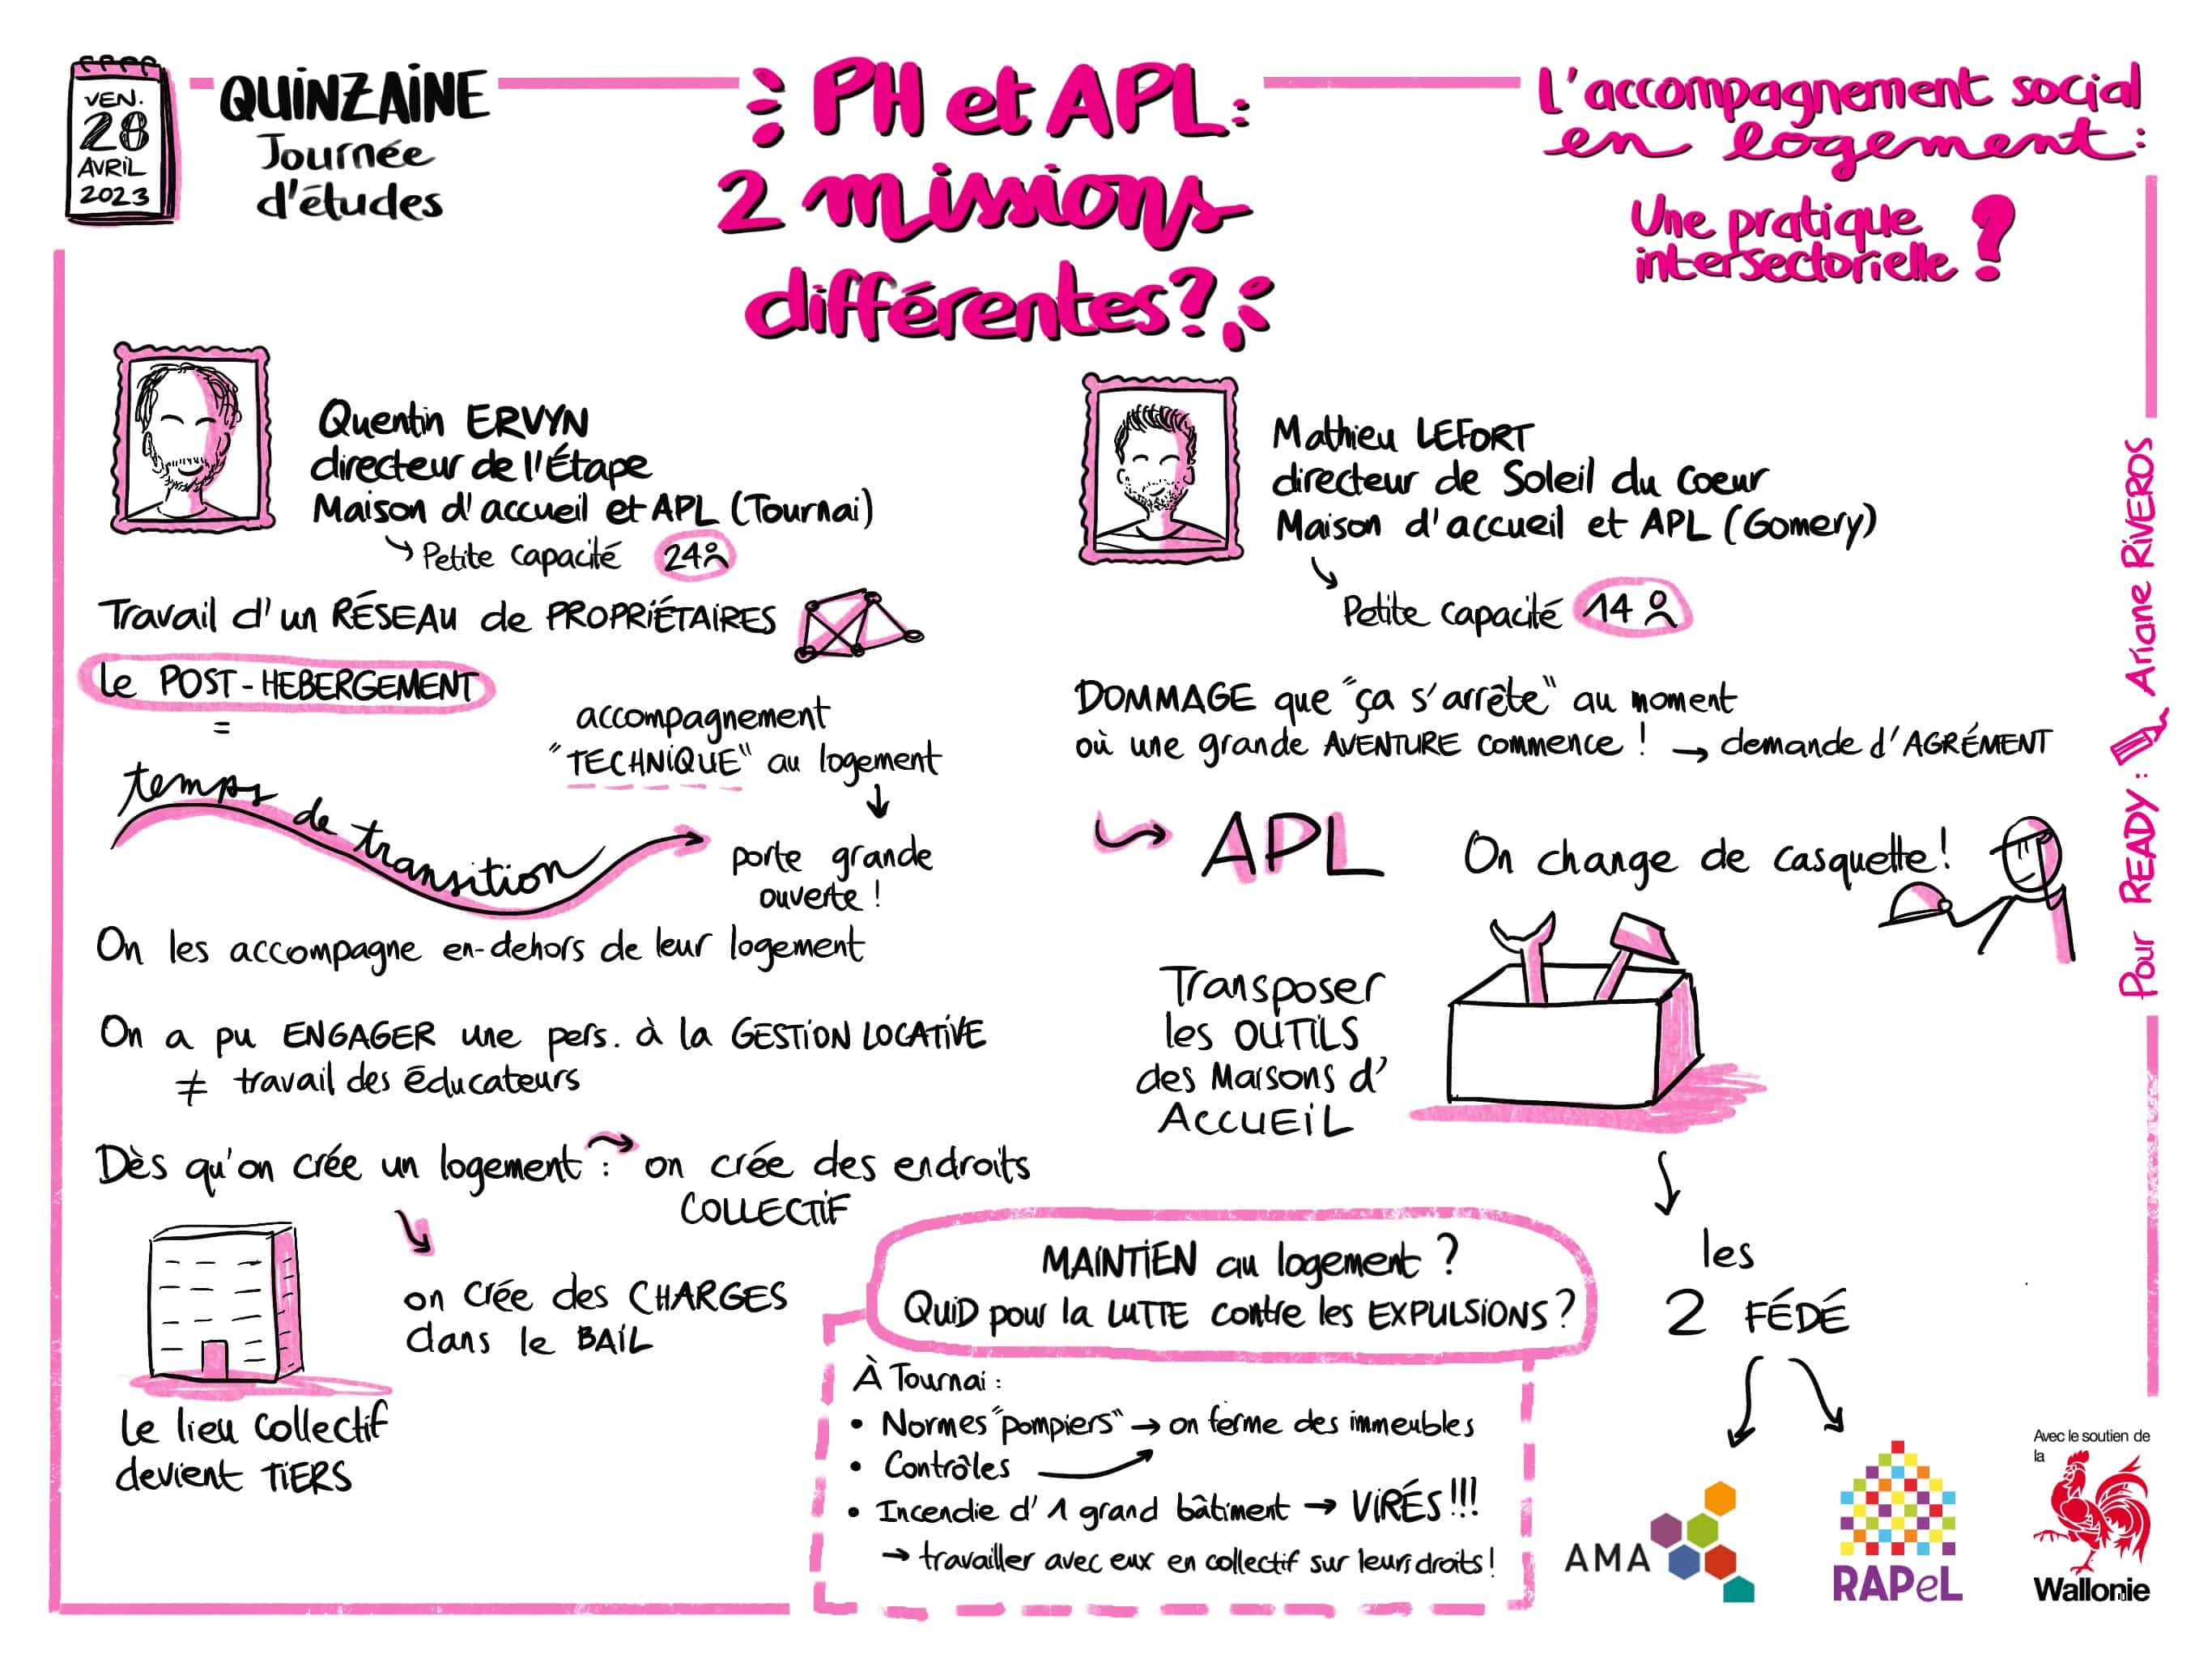 VEN.
28
AVRIL
2023
QUINZAINE
Journée
d'études
PH et APL:
2 missions
différentes?
L'accompagnement social
en logement:
Une pratique
intersectorielle ?
Quentin ERVYN
directeur de l'Étape
Maison d'accueil et APL (Tournai)
Petite capacité 24
Travail d'un RÉSEAU de PROPRIÉTAIRES
Le POST-HEBERGEMENT
=
temps de transition
accompagnement
"TECHNIQUE" au logement
porte grande
ouverte !
On les accompagne en-dehors de leur logement
On a pu ENGAGER une pers. à la GESTION LOCATIVE
≠ travail des éducateurs
Dès qu'on crée un logement : on crée des endroits
COLLECTIF
on crée des CHARGES
dans le BAIL
Le lieu collectif
devient TIERS
Mathieu LEFORT
directeur de Soleil du Coeur
Maison d'accueil et APL (Gomery)
Petite capacité 14
DOMMAGE que "ça s'arrête" au moment
où une grande AVENTURE commence ! → demande d'AGRÉMENT
APL
On change de casquette !
Transposer
les OUTILS
des Maisons d'
ACCUEIL
les
2 FÉDÉ
MAINTIEN au logement ?
QUID pour la LUTTE contre les EXPULSIONS ?
À Tournai :
• Normes "pompiers" → on ferme des immeubles
• Contrôles
• Incendie d'1 grand bâtiment → VIRÉS !!!
→ travailler avec eux en collectif sur leurs droits !
AMA
RAPeL
Avec le soutien de
la
Wallonie
Pour READY : Ariane RIVEROS